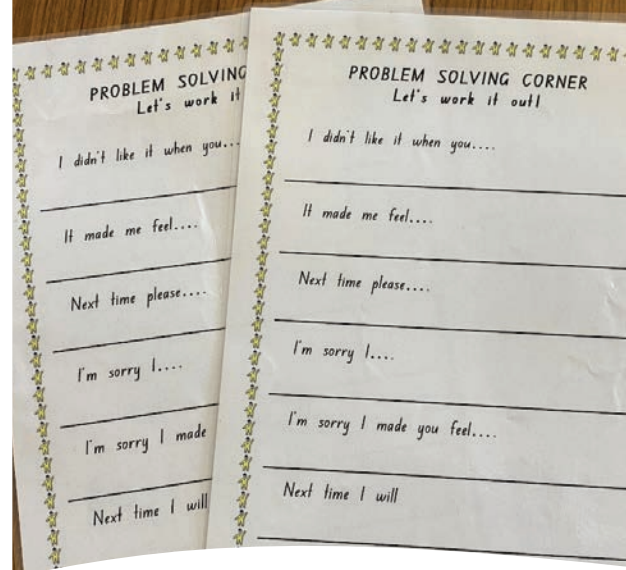 PROBLEM SOLVING
Let's work it
I didn't like it when you...
It made me feel....
Next time please....
I'm sorry I....
I'm sorry I made
Next time I will
PROBLEM SOLVING CORNER
Let's work it out!
I didn't like it when you....
It made me feel....
Next time please....
I'm sorry I....
I'm sorry I made you feel....
Next time I will